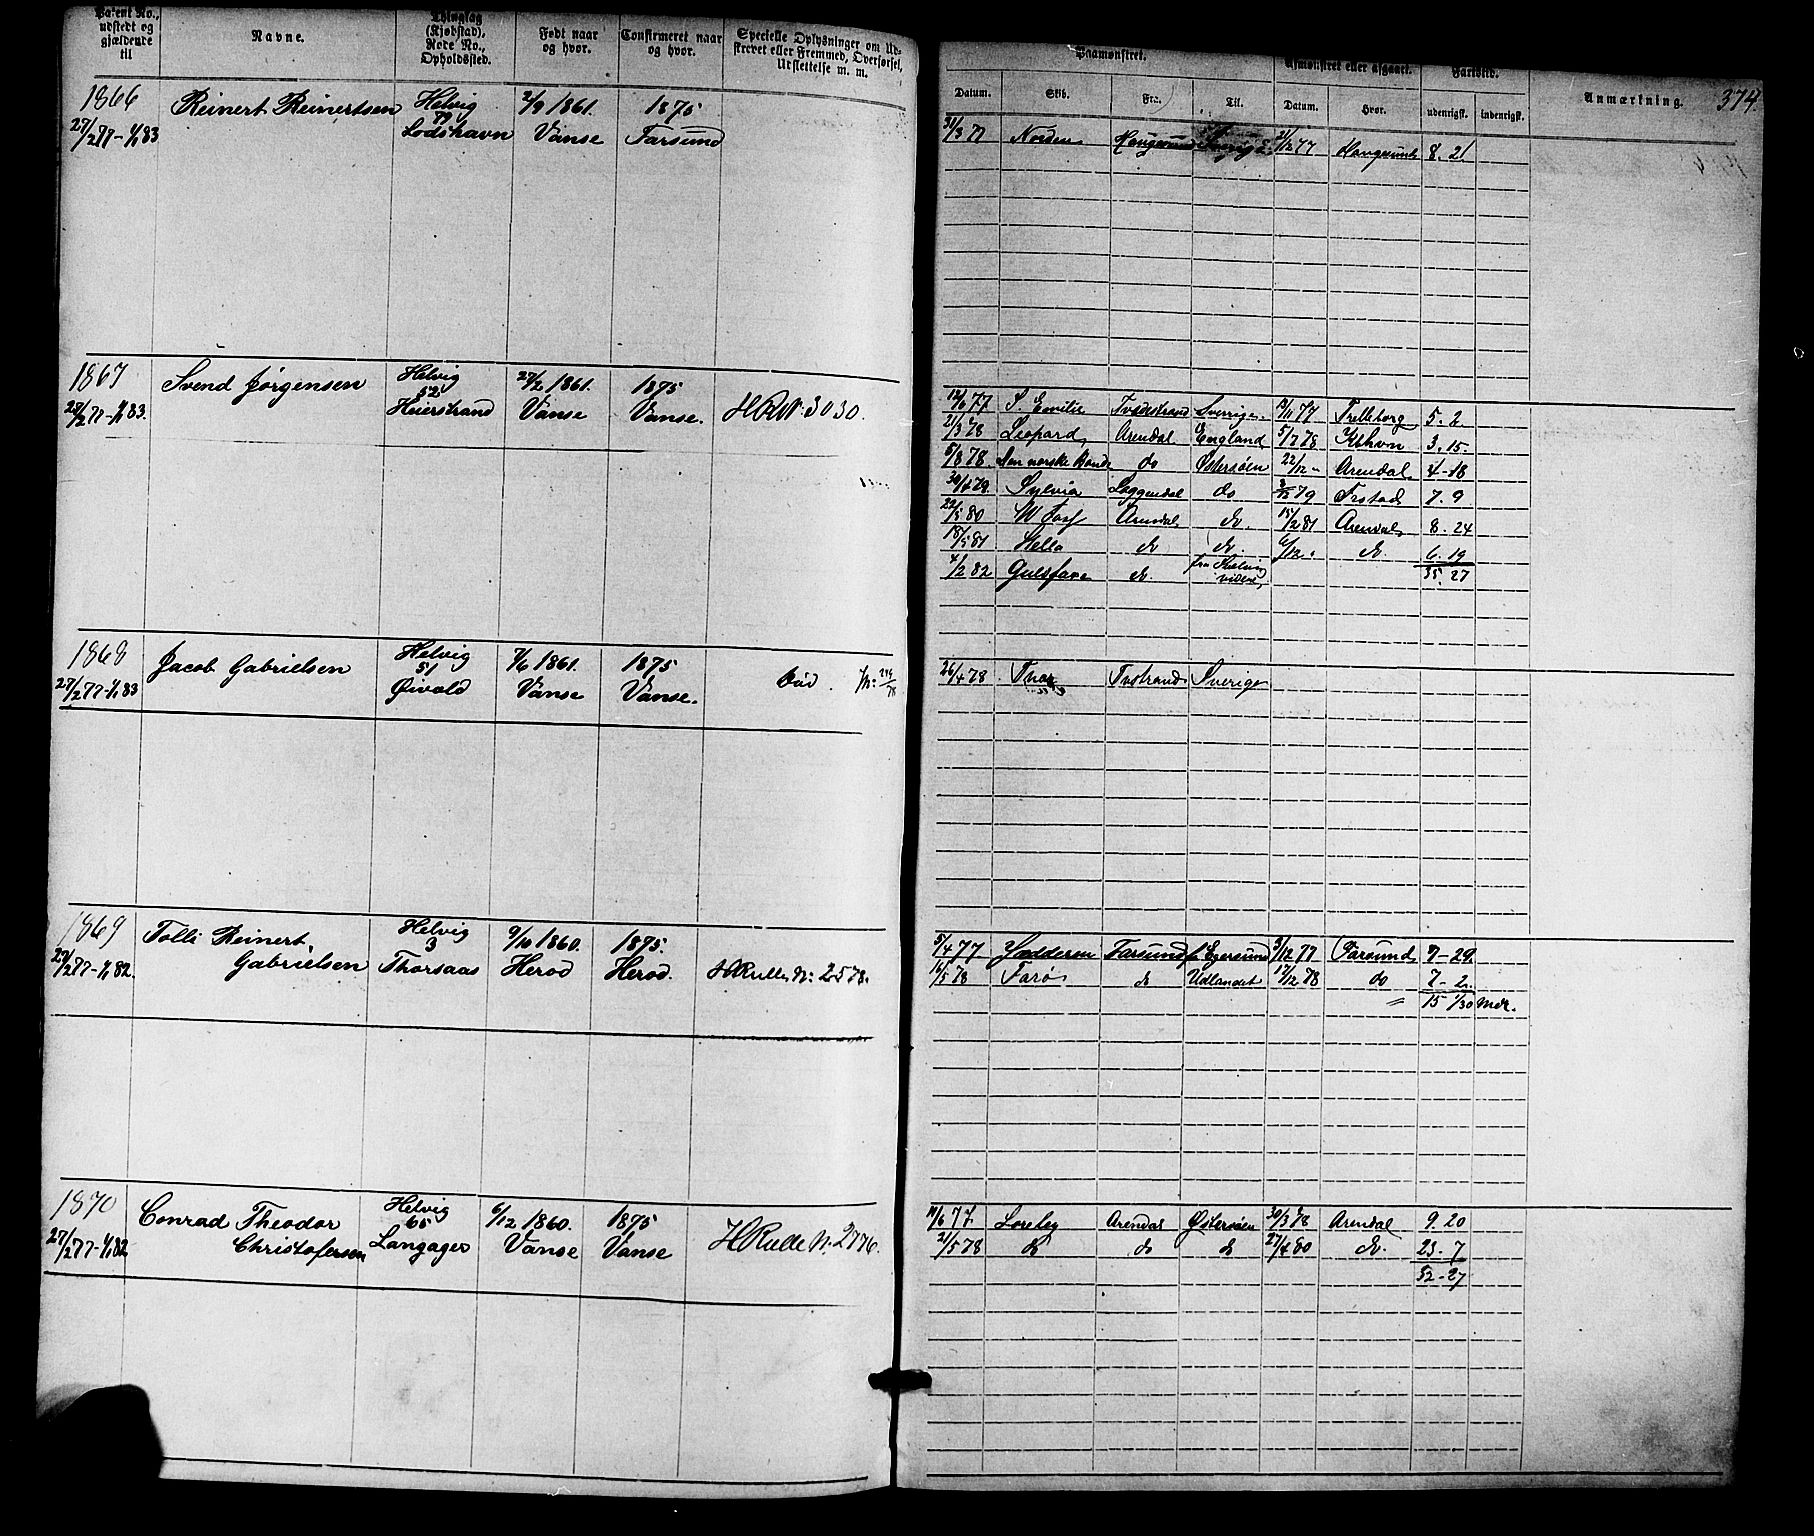 Patent No., udstedt og gjældende til
Navne.
Tilleg (Kjøbstad), Rode No., Opholdssted.
Født naar og hvor.
Confirmeret naar og hvor.
Specielle Oplysninger om Udskrevet eller Fremmed, Overførsel, Udslettelse m. m.
Paamønstret.
Afmønstret eller afgaaet.
Fartstid.
Anmærkning.
374.
Datum.
Skib.
Fra.
Til.
Datum.
Hvor.
udenrigsk.
indenrigsk.
1866 Reinert Reinertsen Helvig 2/9 1861. 1875
27/2 77 - 1/1 83 79 Lodshavn Vanse Farsund
31/3 77 Norden Haugesund 21/12 77 Haugesund 8. 21
1867 Svend Jørgensen Helvig 27/2 1861. 1875
27/2 77 - 1/1 83. 52 Heierstrand Vanse Vanse. HR No. 3030.
12/6 77 S. Emilie Tvedestrand Sverige 13/11 77 Trelleborg 5. 2
21/3 78 Leopard Arendal England 5/7 78 Kbhvn 3. 15.
6/8 78. Den norske Bonde do Østersøen 22/12 " Arendal 4-18
30/4 79. Sylvia Laggendal do 79 7. 9
22/5 80 Arendal do. 15/2 81 Arendal 8. 24
18/5 81 Hella do do. 6/12 " do. 6. 19
35. 27
4/2 82 Gulsfaxe do.
1868 Jacob Gabrielsen Helvig 7/6 1861. 1875
27/2 77 - 1/1 83 51 Øivold Vanse Vanse.
26/4 78 Tvstrand Sverige
1869 Tolli Reinert Helvig 9/10 1860. 1875.
27/2 77 - 1/1 82. Gabrielsen 3 Thorsaas Herod Herod. HRulle No: 2578.
5/4 77 Jædderen Farsund f. Egersund 3/12 77 Farsund 7-29
16/5 78 Farø do Udlandet 17/12 78 do 7-2.
" 15 1/30 Mdr.
1870 Conrad Theodor Helvig 6/12 1860. 1875
27/2 77 - 1/1 82 Christofersen 65 Langager Vanse Vanse HRulle No. 2776.
11/6 77. Loreley Arendal Østersøen 30/3 78 Arendal 9. 20
21/5 78 do do do 27/4 80 do. 23. 7
32-27